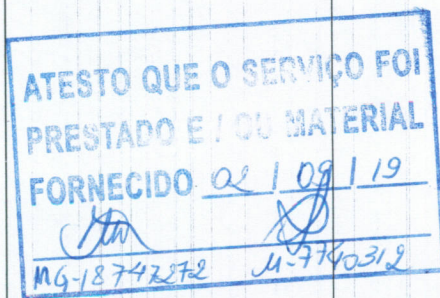 ATESTO QUE O SERVIÇO FOI
PRESTADO E / OU MATERIAL
FORNECIDO 02 / 09 / 19
MG-18747272 M-7740312